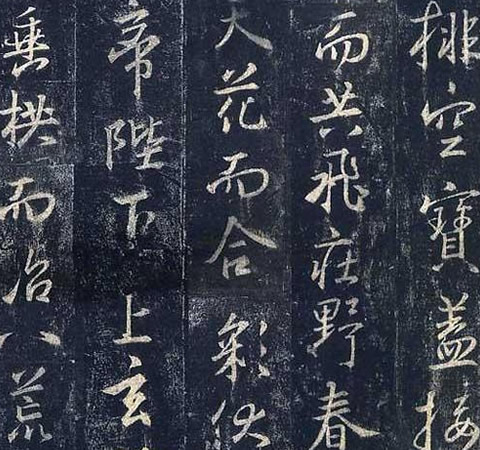 排空寶盖接
而共飛庄野春
天花而合彩伏
帝陛下上玄
垂拱而治八荒